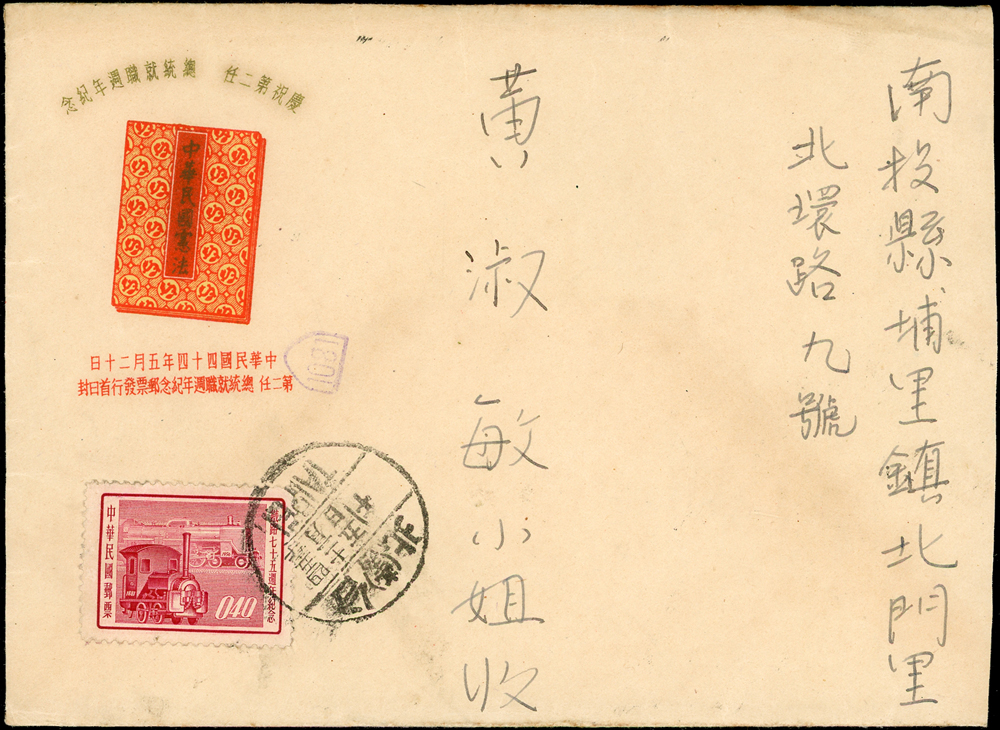 南投縣埔里鎮北門里
北環路九號
黄淑敏小姐收
慶祝第二任 總統就職週年紀念
中華民國憲法
中華民國四十四年五月二十日
第二任 總統就職週年紀念郵票發行首日封
1081
中華民國郵票
鐵路七十五週年紀念
040
臺北
TAIPEI